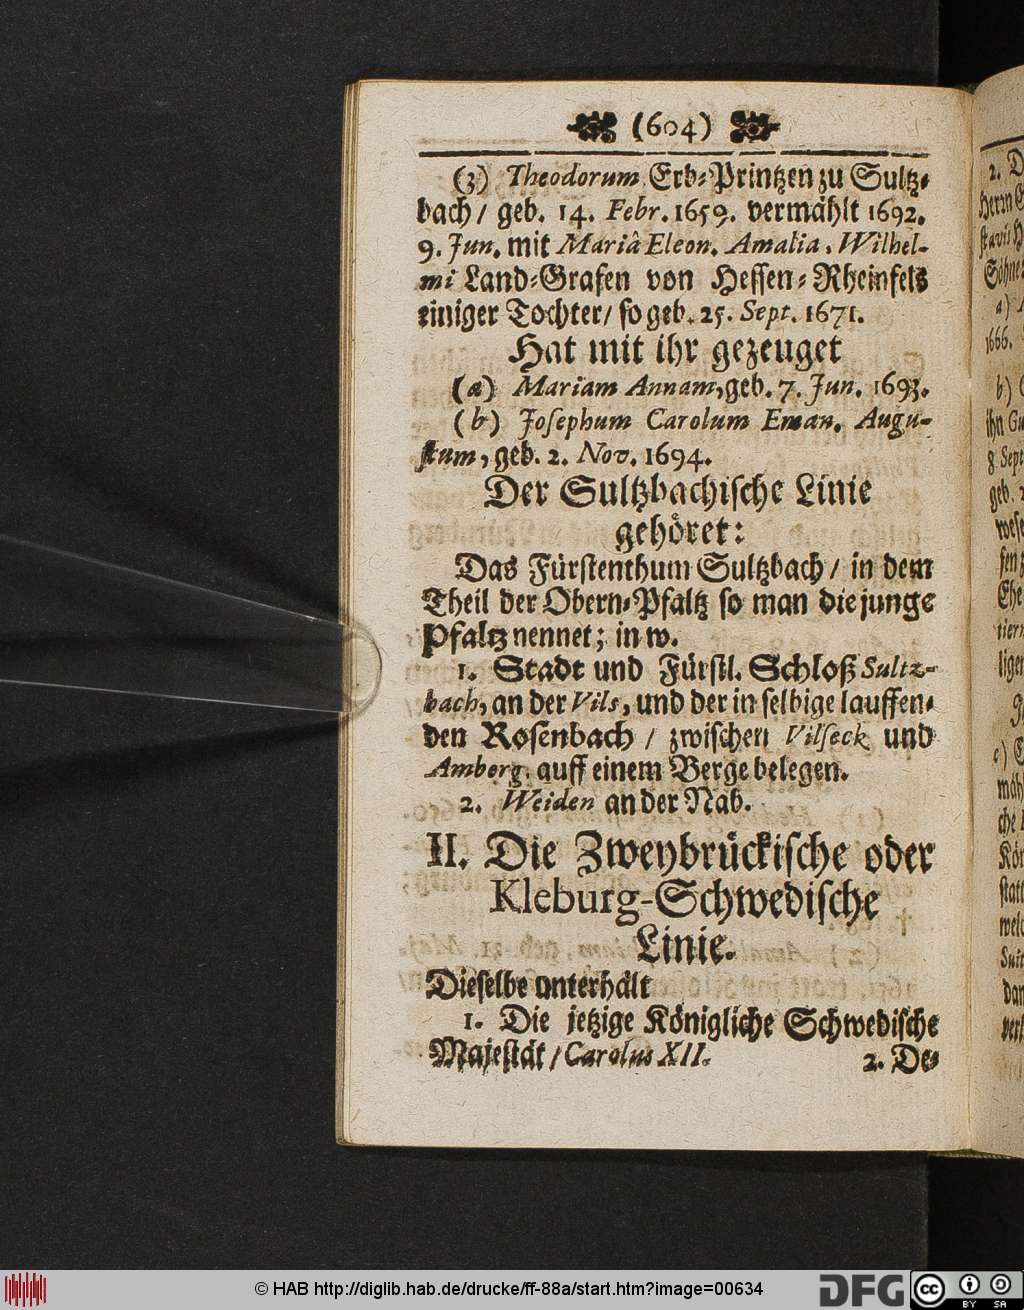 (604)
(3) Theodorum Erb-Printzen zu Sultz-
bach / geb. 14. Febr. 1659. vermählt 1692.
9. Jun. mit Mariâ Eleon. Amalia, Wilhel-
mi Land-Grafen von Hessen-Rheinfels
einiger Tochter / so geb. 25. Sept. 1671.
Hat mit ihr gezeuget
(a) Mariam Annam, geb. 7. Jun. 1693.
(b) Josephum Carolum Eman. Augu-
stum, geb. 2. Nov. 1694.
Der Sultzbachische Linie
gehöret:
Das Fürstenthum Sultzbach / in dem
Theil der Obern-Pfaltz so man die junge
Pfaltz nennet; in w.
1. Stadt und Fürstl. Schloß Sultz-
bach, an der Vils, und der in selbige lauffen-
den Rosenbach / zwischen Vilseck und
Amberg. auff einem Berge belegen.
2. Weiden an der Nab.
II. Die Zweybrückische oder
Kleburg-Schwedische
Linie.
Dieselbe unterhält
1. Die jetzige Königliche Schwedische
Majestät / Carolus XII.
2. De-
© HAB http://diglib.hab.de/drucke/ff-88a/start.htm?image=00634
DFG
cc
BY SA